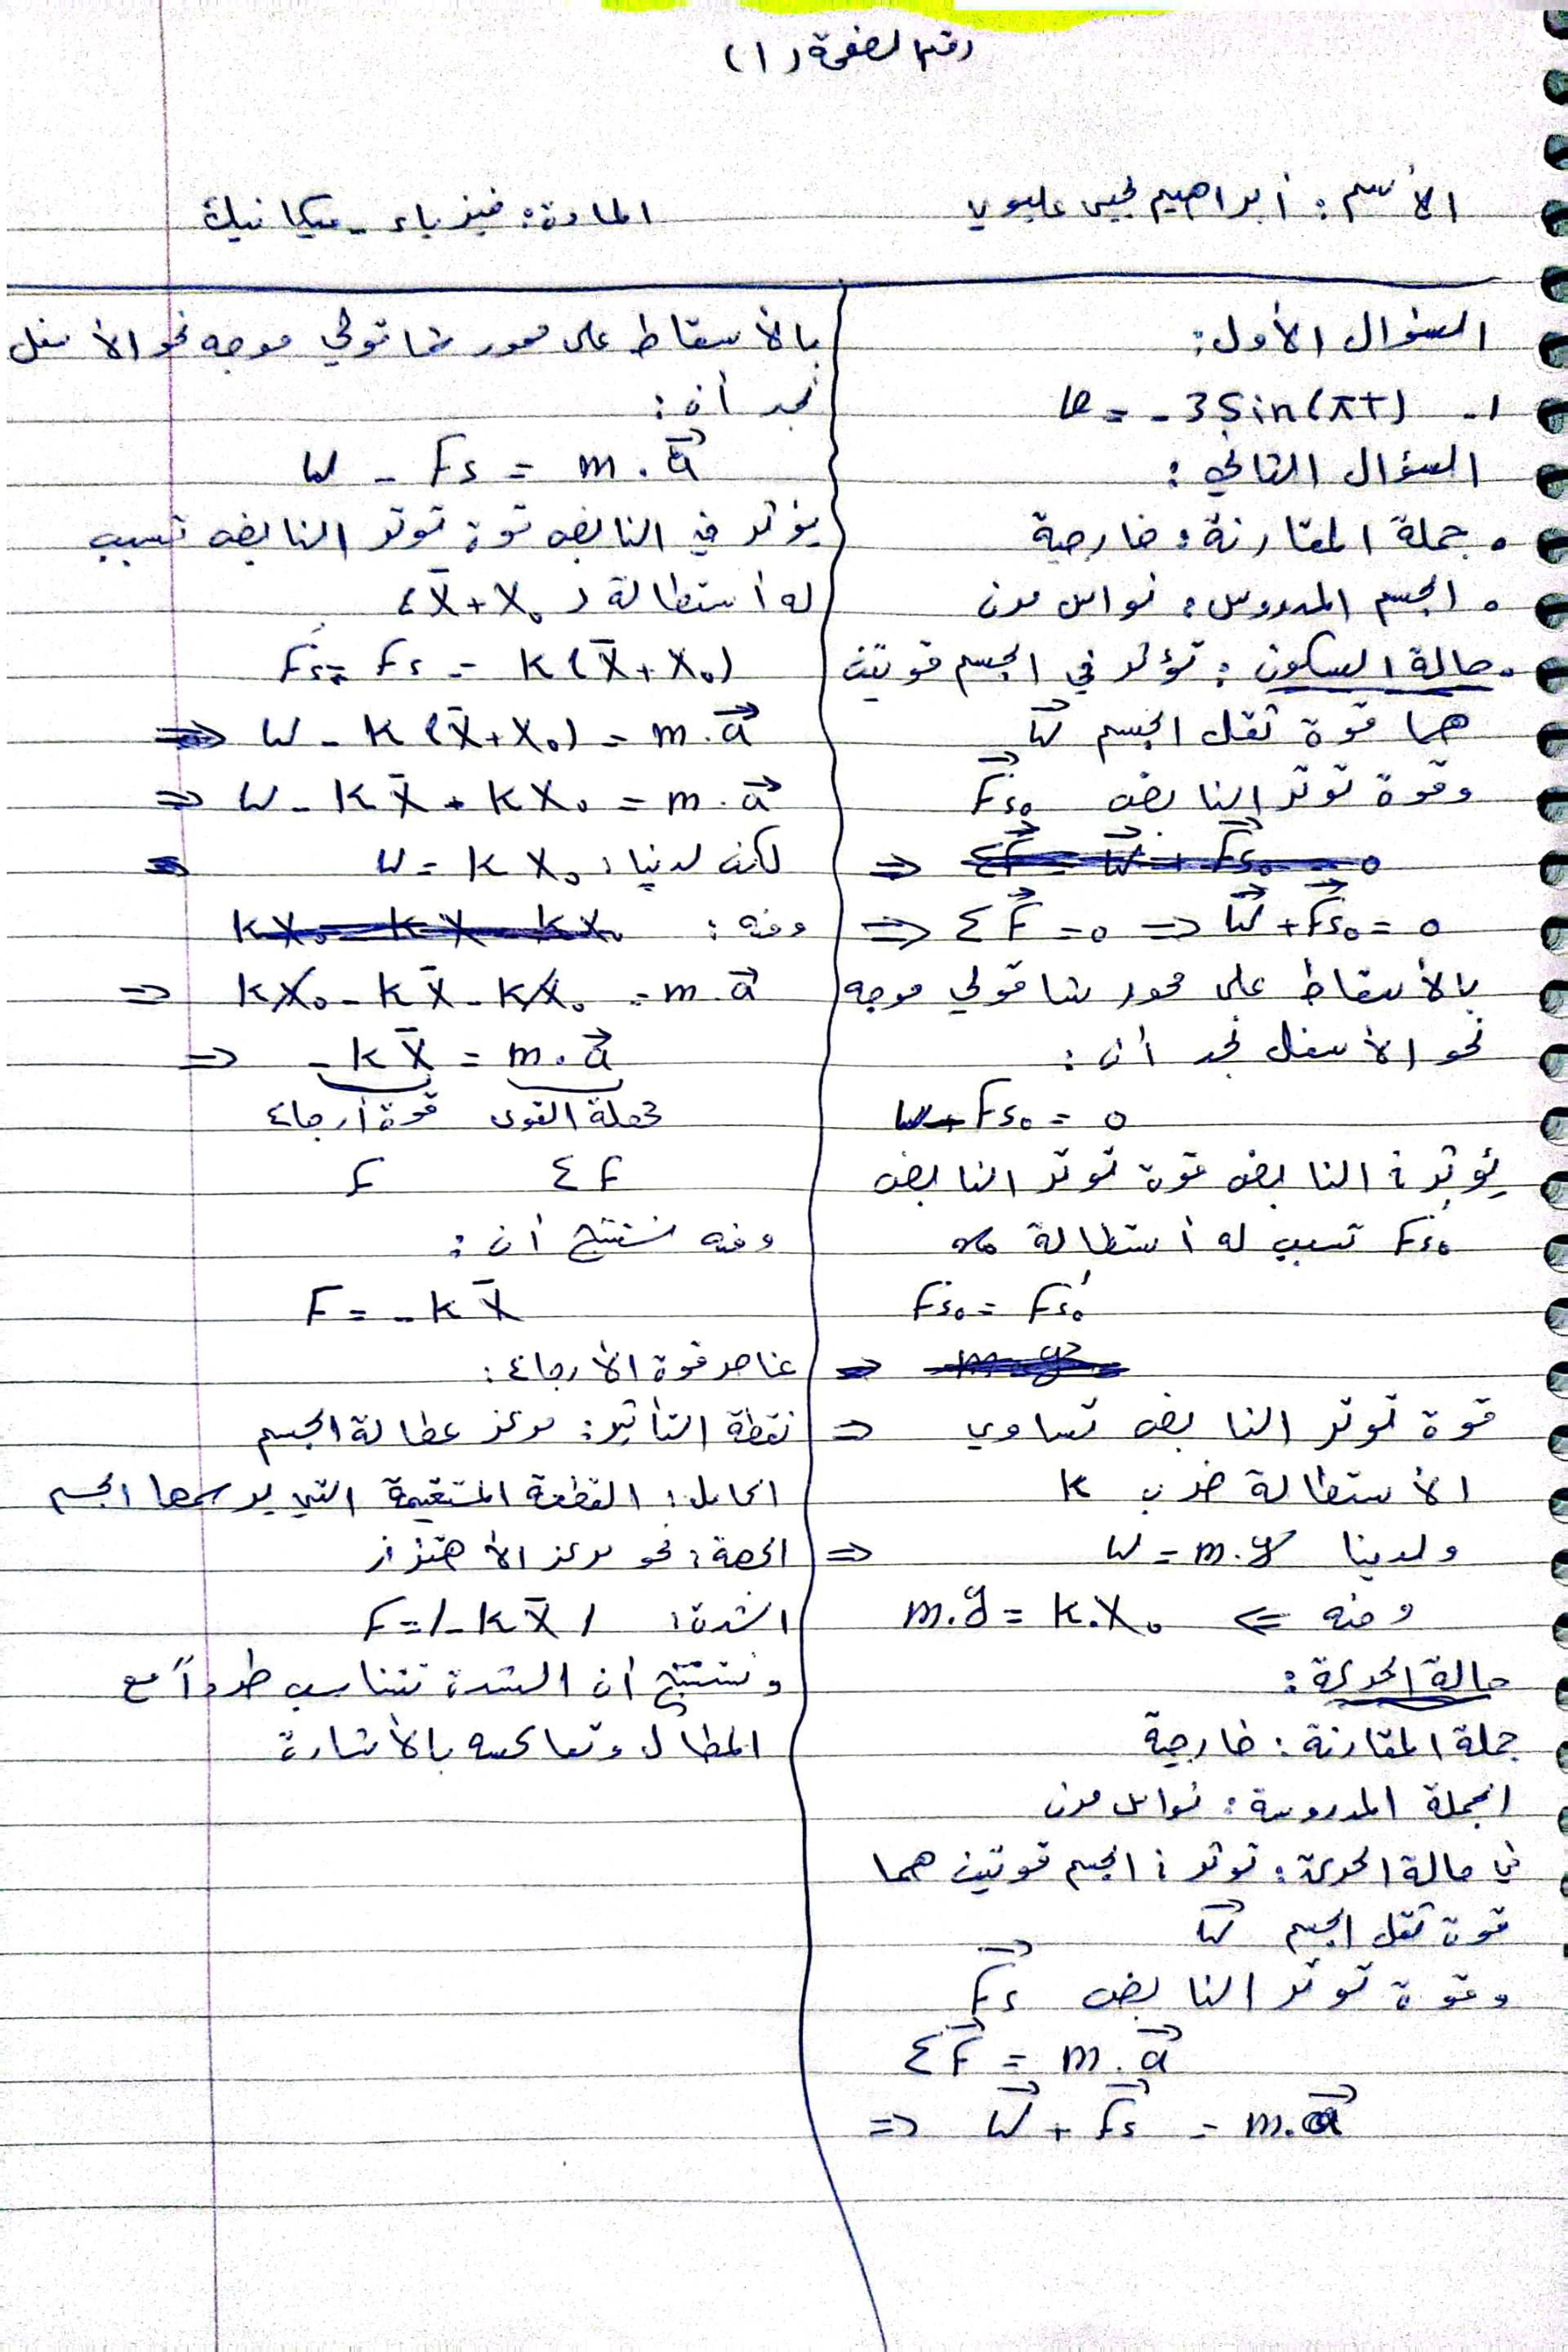 رقم الصفحة (١)
الأسم : أبراهيم يحيى عليوي
المادة : فيزياء - ميكانيك
السؤال الأول :
١- v = - 3 sin(πt)
السؤال الثاني :
• جملة المقارنة : خارجية
• الجسم المدروس : نواس مرن
• حالة السكون : تؤثر في الجسم قوتين
هما قوة ثقل الجسم W⃗
وقوة توتر النابض F⃗s₀
ΣF⃗ = W⃗ + F⃗s₀ = 0 ⇒
ΣF⃗ = 0 ⇒ W⃗ + F⃗s₀ = 0 ⇒
بالأسقاط على محور شاقولي موجه
نحو الأسفل نجد أن :
W - Fs₀ = 0
يؤثر في النابض قوة توتر النابض
F's₀ تسبب له أستطالة x₀
Fs₀ = F's₀
m.g ⇒
قوة توتر النابض تساوي ⇒
الأستطالة ضرب k
ولدينا W = m.g ⇒
ومنه ⇐ m.g = k.x₀
حالة الحركة :
جملة المقارنة : خارجية
الجملة المدروسة : نواس مرن
في حالة الحركة : تؤثر في الجسم قوتين هما
قوة ثقل الجسم W⃗
وقوة توتر النابض F⃗s
ΣF⃗ = m.a⃗
⇒ W⃗ + F⃗s = m.a⃗
بالأسقاط على محور شاقولي موجه نحو الأسفل
نجد أن :
W - Fs = m.a⃗
يؤثر في النابض قوة توتر النابض تسبب
له أستطالة (x̄ + x₀)
F's = Fs = k(x̄ + x₀)
⇒ W - k(x̄ + x₀) = m.a⃗
⇒ W - kx̄ - kx₀ = m.a⃗
لكن لدينا : W = kx₀
ومنه : kx₀ - kx̄ - kx₀
⇒ kx₀ - kx̄ - kx₀ = m.a⃗
⇒ -kx̄ = m.a⃗
محصلة القوى قوة أرجاع
ΣF F
ومنه نستنتج أن :
F = -kx̄
عناصر قوة الأرجاع :
نقطة التأثير : مركز عطالة الجسم
الحامل : القطعة المستقيمة التي يرسمها الجسم
الجهة : نحو مركز الأهتزاز
الشدة : F = |-kx̄|
ونستنتج أن الشدة تتناسب طرداً مع
المطال وتعاكسه بالأشارة